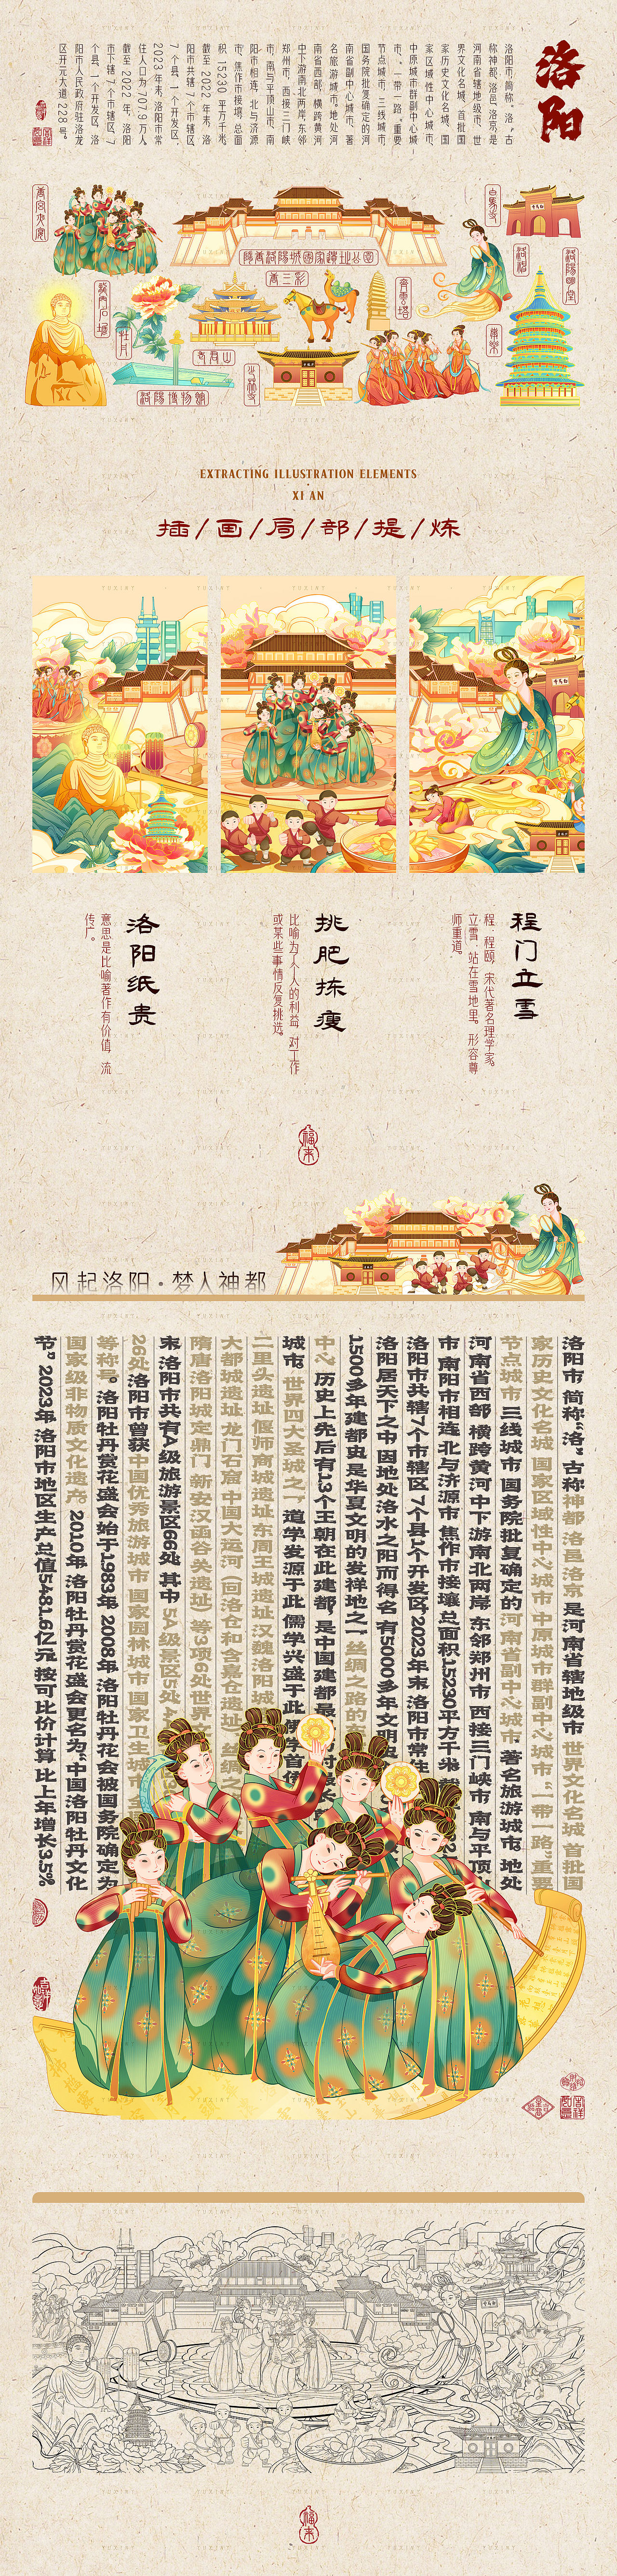 洛阳
洛阳市,简称“洛”,古
称神都、洛邑、洛京,是
河南省辖地级市、世
界文化名城、首批国
家历史文化名城、国
家区域性中心城市、
中原城市群副中心城
市、“一带一路”重要
节点城市、三线城市,
国务院批复确定的河
南省副中心城市、著
名旅游城市。地处河
南省西部、横跨黄河
中下游南北两岸,东邻
郑州市,西接三门峡
市,南与平顶山市、南
阳市相连,北与济源
市、焦作市接壤,总面
积 15230 平方千米。
截至 2022 年末,洛
阳市共辖 7 个市辖区、
7 个县、1 个开发区,
2023 年末,洛阳市常
住人口为 707.9 万人。
截至 2022 年,洛阳
市下辖 7 个市辖区、7
个县、1 个开发区。洛
阳市人民政府驻洛龙
区开元大道 228 号。
隋唐洛阳城国家遗址公园
白马寺
唐三彩
牡丹
老君山
洛阳博物馆
少林寺
EXTRACTING ILLUSTRATION ELEMENTS
XI AN
插/画/局/部/提/炼
程门立雪
程:程颐,宋代著名理学家。
立雪:站在雪地里。形容尊
师重道。
挑肥拣瘦
比喻为了个人的利益,对工作
或某些事情反复挑选。
洛阳纸贵
意思是比喻著作有价值,流
传广。
福来
风起洛阳·梦入神都
洛阳市,简称“洛”,古称神都、洛邑、洛京,是河南省辖地级市、世界文化名城、首批国
家历史文化名城、国家区域性中心城市、中原城市群副中心城市、“一带一路”重要
节点城市、三线城市,国务院批复确定的河南省副中心城市、著名旅游城市。地处
河南省西部、横跨黄河中下游南北两岸,东邻郑州市,西接三门峡市,南与平顶山
市、南阳市相连,北与济源市、焦作市接壤,总面积15230平方千米。
洛阳市共辖7个市辖区、7个县、1个开发区,2023年末,洛阳市常住
洛阳居天下之中,因地处洛水之阳而得名,有5000多年文明
1500多年建都史,是华夏文明的发祥地之一、丝绸之路的
中心,历史上先后有13个王朝在此建都,是中国建都最
城市。世界四大圣城之一,道学发源于此,儒学兴盛于此
二里头遗址、偃师商城遗址、东周王城遗址、汉魏洛阳城
大都城遗址,龙门石窟、中国大运河(回洛仓和含嘉仓遗址)、丝绸之
隋唐洛阳城定鼎门、新安汉函谷关遗址)等3项6处世界
末,洛阳市共有A级旅游景区66处,其中,5A级景区5处
26处,洛阳市曾获中国优秀旅游城市、国家园林城市、国家卫生城市
等称号。洛阳牡丹赏花盛会始于1983年,2008年,洛阳牡丹花会被国务院确定为
国家级非物质文化遗产。2010年,洛阳牡丹赏花盛会更名为“中国洛阳牡丹文化
节”。2023年,洛阳市地区生产总值5481.6亿元,按可比价计算,比上年增长3.5%
福来